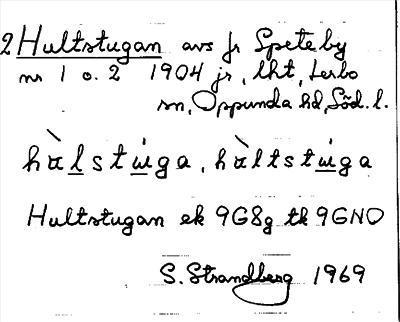 2 Hultstugan avs fr Speteby
nr 1 o. 2 1904 jr, lht, Lerbo
sn, Oppunda hd, Söd. l.
hàlstu̇ga, hàltstu̇ga
Hultstugan ek 9G8g tk 9GNO
S. Strandberg 1969